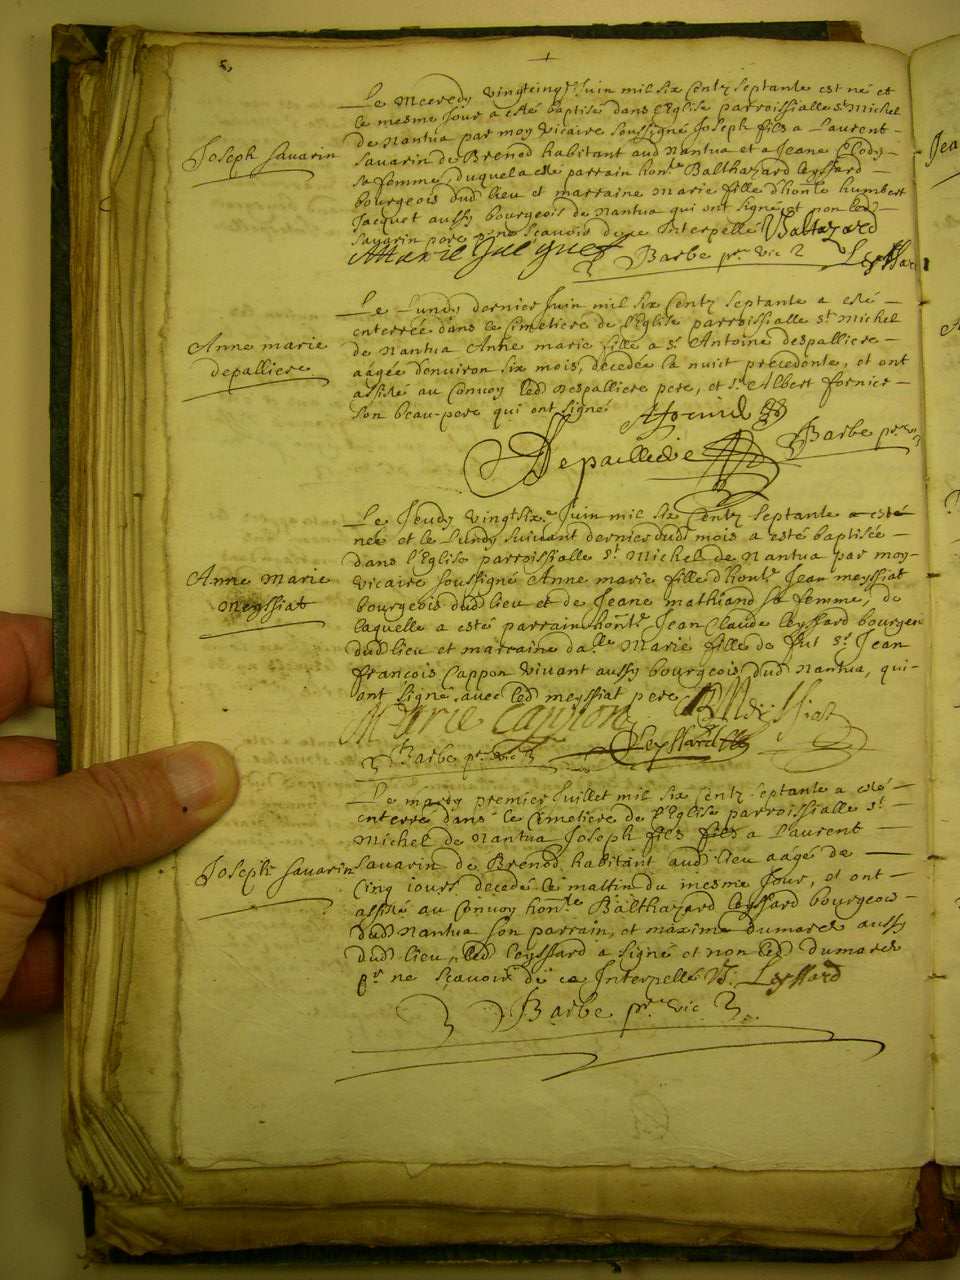 8,
Joseph Savarin
Le Mceredy vingteinq Juin mil six Centz Septante est né et
le mesme Jour a esté baptisé dans l'Eglise parroissialle st Michel
de Nantua par moy vicaire soussigné Joseph fils a Laurent
Savarin de Brenod habitant aud Nantua et a Jeane
sa femme, duquel a esté parrain honle. Balthazard leyssard
bourgeois dud lieu et marraine Marie fille d'honle humbert
Jacquet aussy bourgeois de Nantua qui ont signé et non led
Savarin pere pr ne sçavoir de ce Interpellé Baltazard
Marie Jacquet
Barbe pr. vic Leyssard
Anne marie
depalliere
Le Lundy dernier Juin mil six Centz Septante a esté
enterrée dans le Cimetiere de l'Eglise parroissialle st Michel
de Nantua Anne marie fille a sr Antoine despalliere
aagée d'environ six mois, decedée la nuit precedente, et ont
assisté au Convoy led Despalliere pere, et sr. Albert fornier
son beau-pere qui ont signé
Depailliere
Barbe pr. vic
Anne Marie
Meyssiat
Le Jeudy vingtsixe Juin mil six Centz Septante a esté
née et le Lundy suivant dernier dud mois a esté baptisée
dans l'Eglise parroissialle st Michel de Nantua par moy
vicaire soussigné Anne marie fille d'honle. Jean meyssiat
bourgeois dud lieu et de Jeane mathiand sa femme, de
laquelle a esté parrain honle. Jean Claude leyssard bourgeois
dud lieu et marraine dalle Marie fille de fut sr. Jean
françois Cappon vivant aussy bourgeois dud Nantua, qui
ont signé avec led meyssiat pere
Marie Capion Meissiat
Barbe pr. vic Leyssard
Joseph Savarin
Le mardy premier Juillet mil six Centz Septante a esté
enterré dans le Cimetiere de l'Eglise parroissialle st
Michel de Nantua Joseph fils fils a Laurent
Savarin de Brenod habitant aud lieu aagé de
Cinq iours decedé le mattin du mesme Jour, et ont
assisté au Convoy honle Balthazard leyssard bourgeois
dud Nantua son parrain, et maxime dumarest aussy
dud lieu, led leyssard a signé et non led dumarest
pr ne sçavoir de ce Interpellé B. Leyssard
Barbe pr. vic